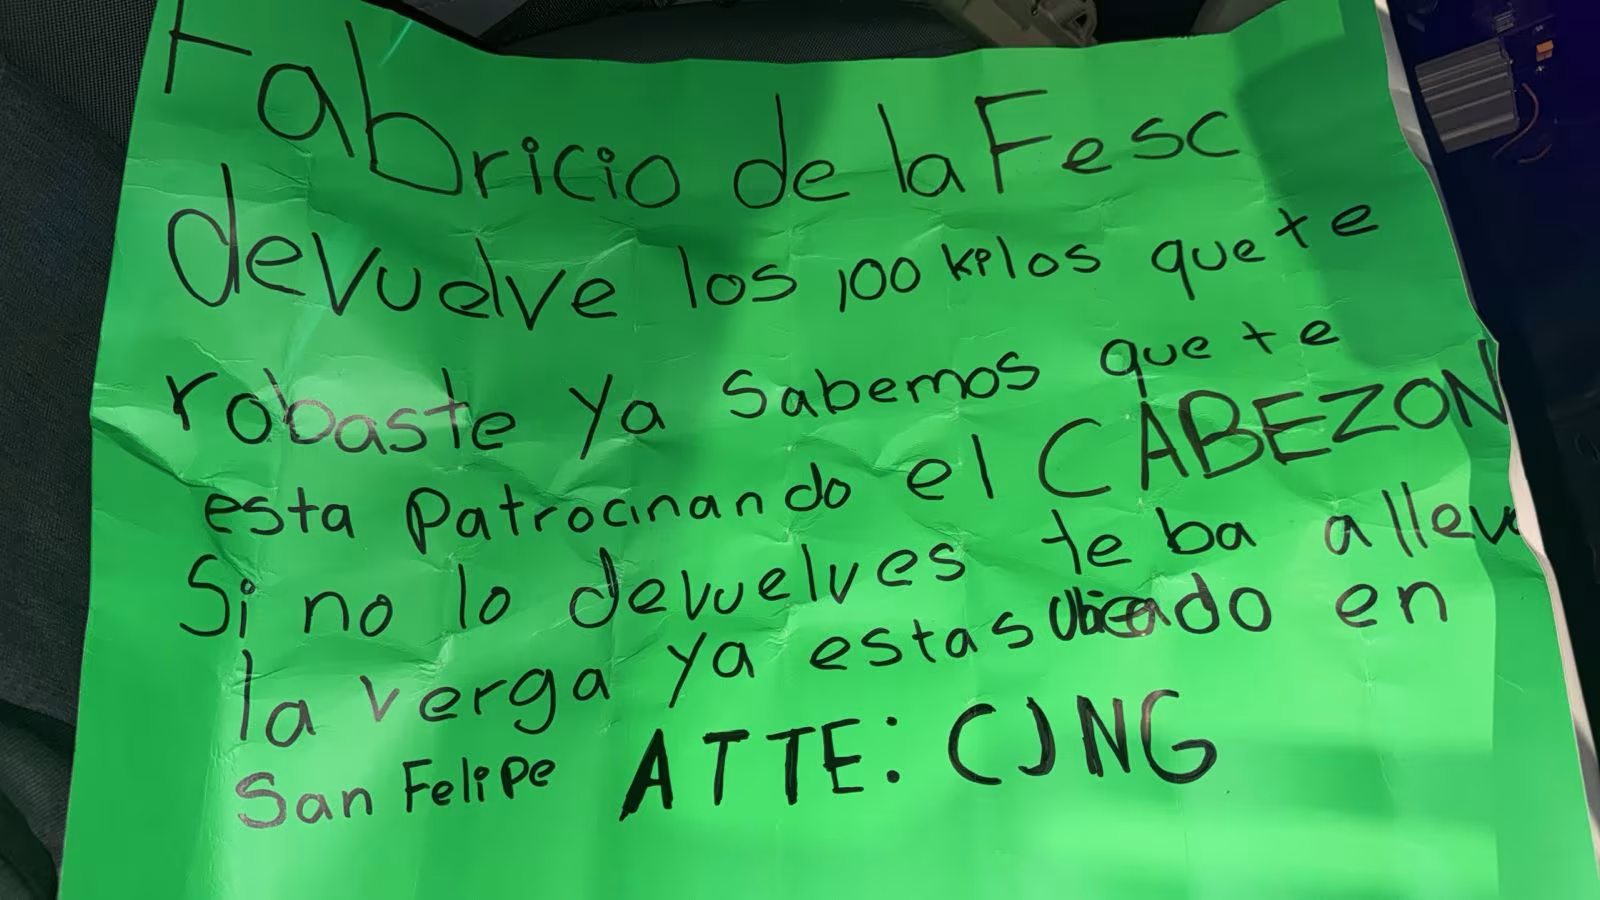 Fabricio de la Fesc
devuelve los 100 kilos que te
robaste ya sabemos que te
esta Patrocinando el CABEZON
Si no lo devuelves te ba a lleva
la verga ya estas Ubicado en
San Felipe ATTE: CJNG